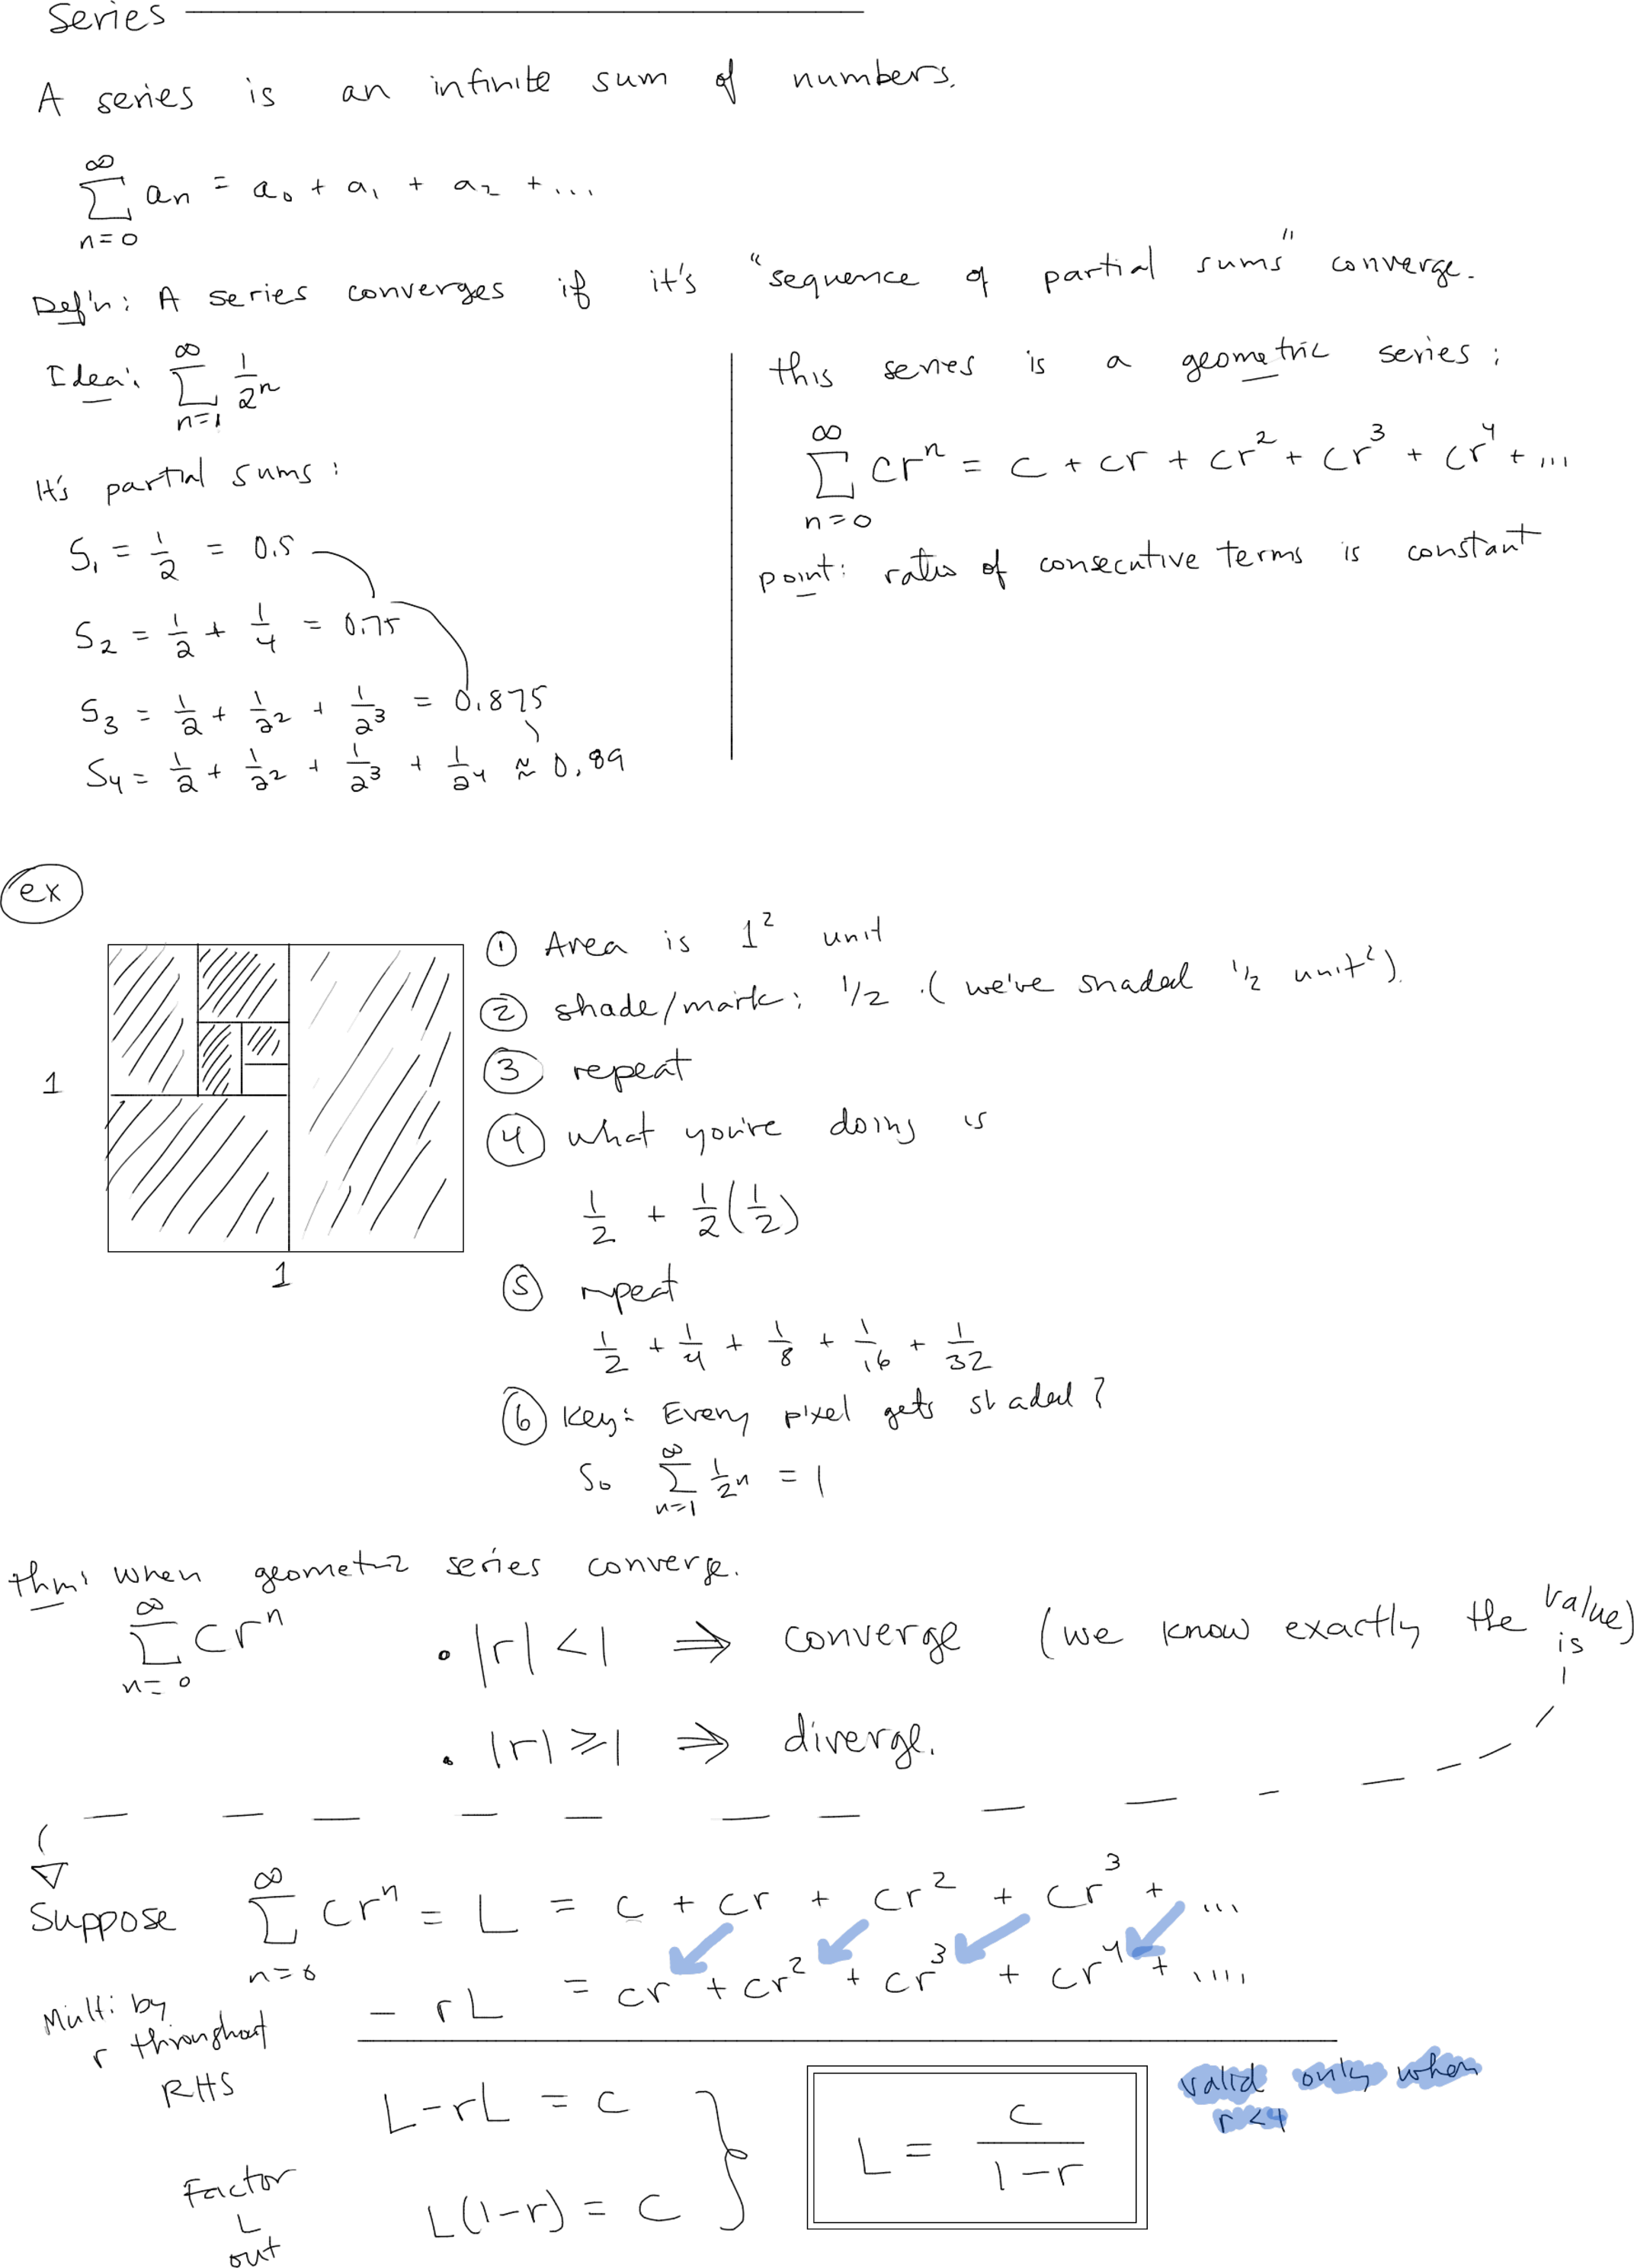 Series
A series is an infinite sum of numbers.
∞
∑ an = a₀ + a₁ + a₂ + ...
n=0
Def'n: A series converges if it's "sequence of partial sums" converge.
Idea: ∞
∑ 1/2ⁿ
n=1
It's partial sums:
S₁ = 1/2 = 0.5
S₂ = 1/2 + 1/4 = 0.75
S₃ = 1/2 + 1/2² + 1/2³ = 0.875
S₄ = 1/2 + 1/2² + 1/2³ + 1/2⁴ ≈ 0.89
this series is a geometric series:
∞
∑ crⁿ = c + cr + cr² + cr³ + cr⁴ + ...
n=0
point: ratio of consecutive terms is constant
ex
1
1
① Area is 1² unit
② shade/mark: 1/2 . (we've shaded 1/2 unit²).
③ repeat
④ what you're doing is
1/2 + 1/2(1/2)
⑤ repeat
1/2 + 1/4 + 1/8 + 1/16 + 1/32
⑥ Key: Every pixel gets shaded?
So ∞
∑ 1/2ⁿ = 1
n=1
thm: when geometric series converge.
∞
∑ crⁿ
n=0
• |r| < 1 ⇒ converge (we know exactly the value)
is
• |r| ≥ 1 ⇒ diverge.
Suppose ∞
∑ crⁿ = L = c + cr + cr² + cr³ + ...
n=0
- rL = cr + cr² + cr³ + cr⁴ + ....
Multi by
r throughout
RHS
L-rL = c
Factor
L
out
L(1-r) = c
L = c/(1-r)
valid only when
r<1